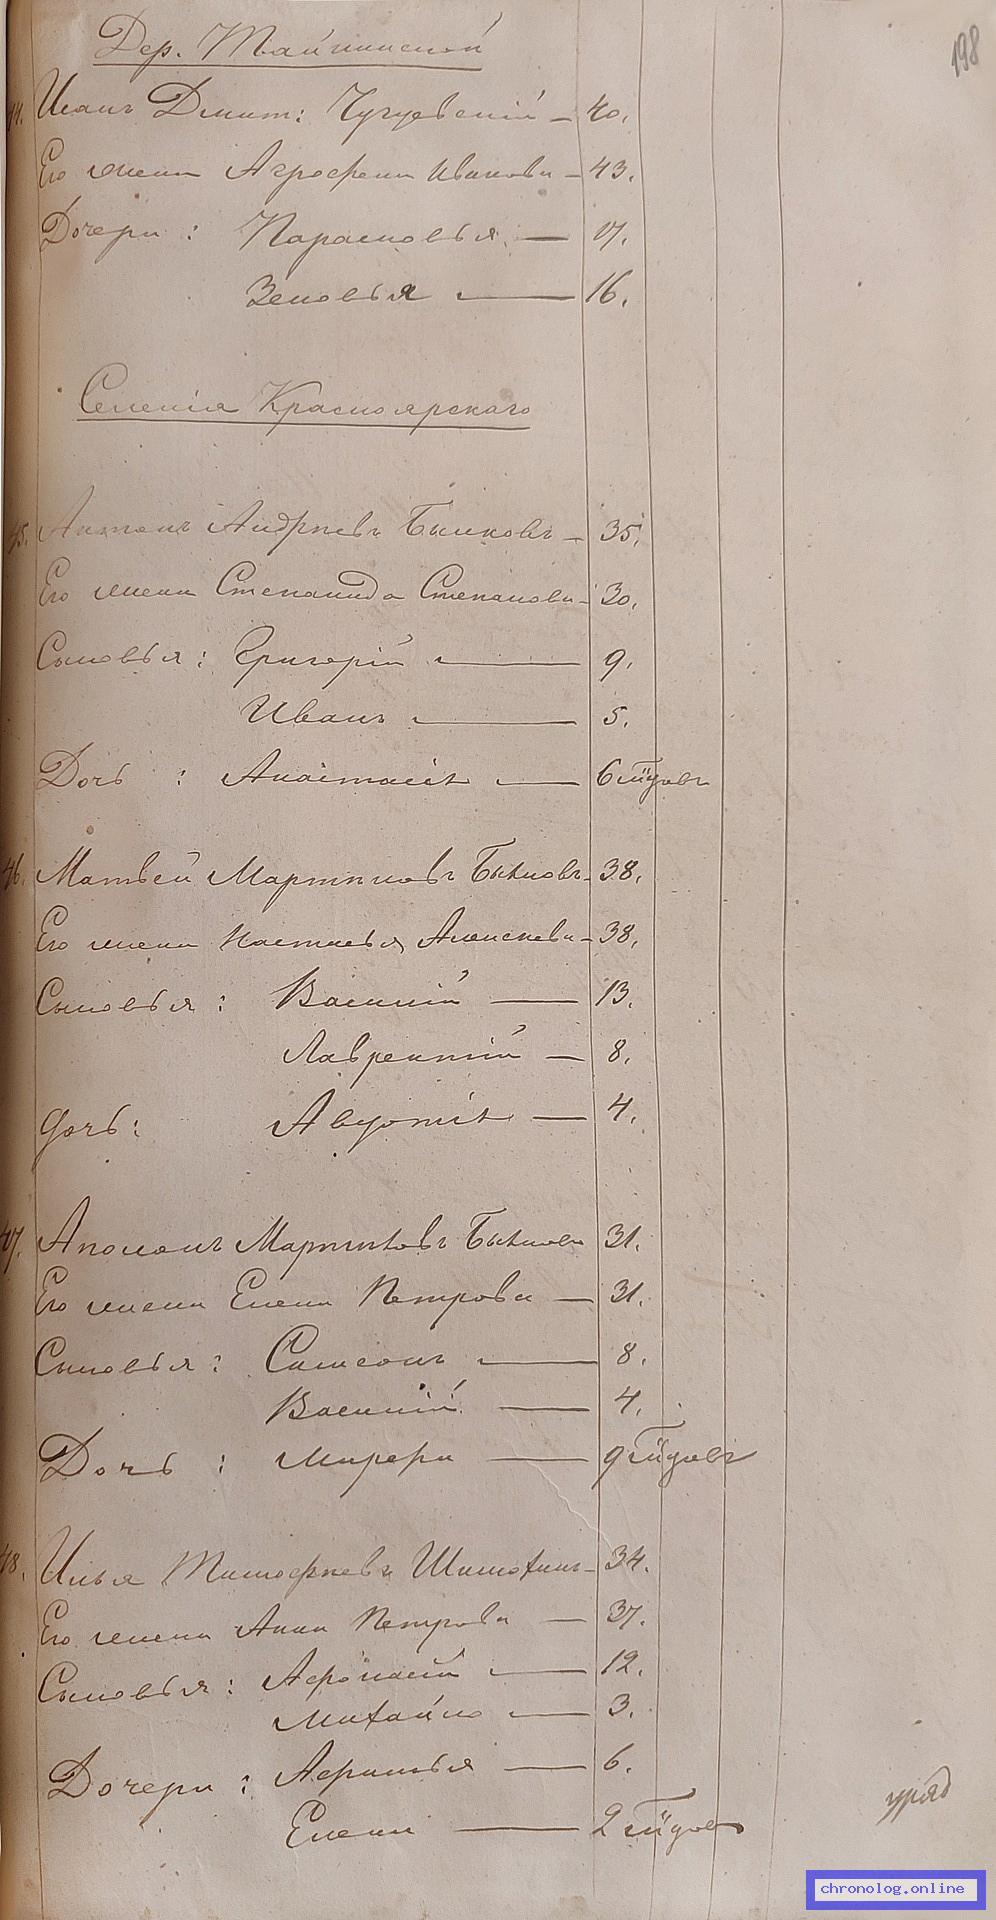 198
Дер. Тайнинской
44. Иванъ Дмит: Чугуевскій — 40.
Его жена Агрофена Иванова — 43.
Дочери: Парасковья — 17.
Зеновья — 16.
Селенія Красноярского
45. Антонъ Андреевъ Быковъ — 35.
Его жена Степанида Степанова — 30.
Сыновья: Григорій — 9.
Иванъ — 5.
Дочь: Анастасія — 6
46. Матвей Мартыновъ Быковъ — 38.
Его жена Настасья Алексеева — 38.
Сыновья: Василій — 13.
Лаврентій — 8.
дочь: Авдотія — 4.
47. Мартыновъ Быковъ 31.
Его жена Елена Петрова — 31.
Сыновья: Симеонъ — 8.
Василій — 4.
Дочь: — 9
48. Илья Тимофеевъ — 34.
Его жена Анна Петрова — 37.
Сыновья: Афонасій — 12.
Михайло — 3.
Дочери: — 6.
Елена — 2
уряд
chronolog.online